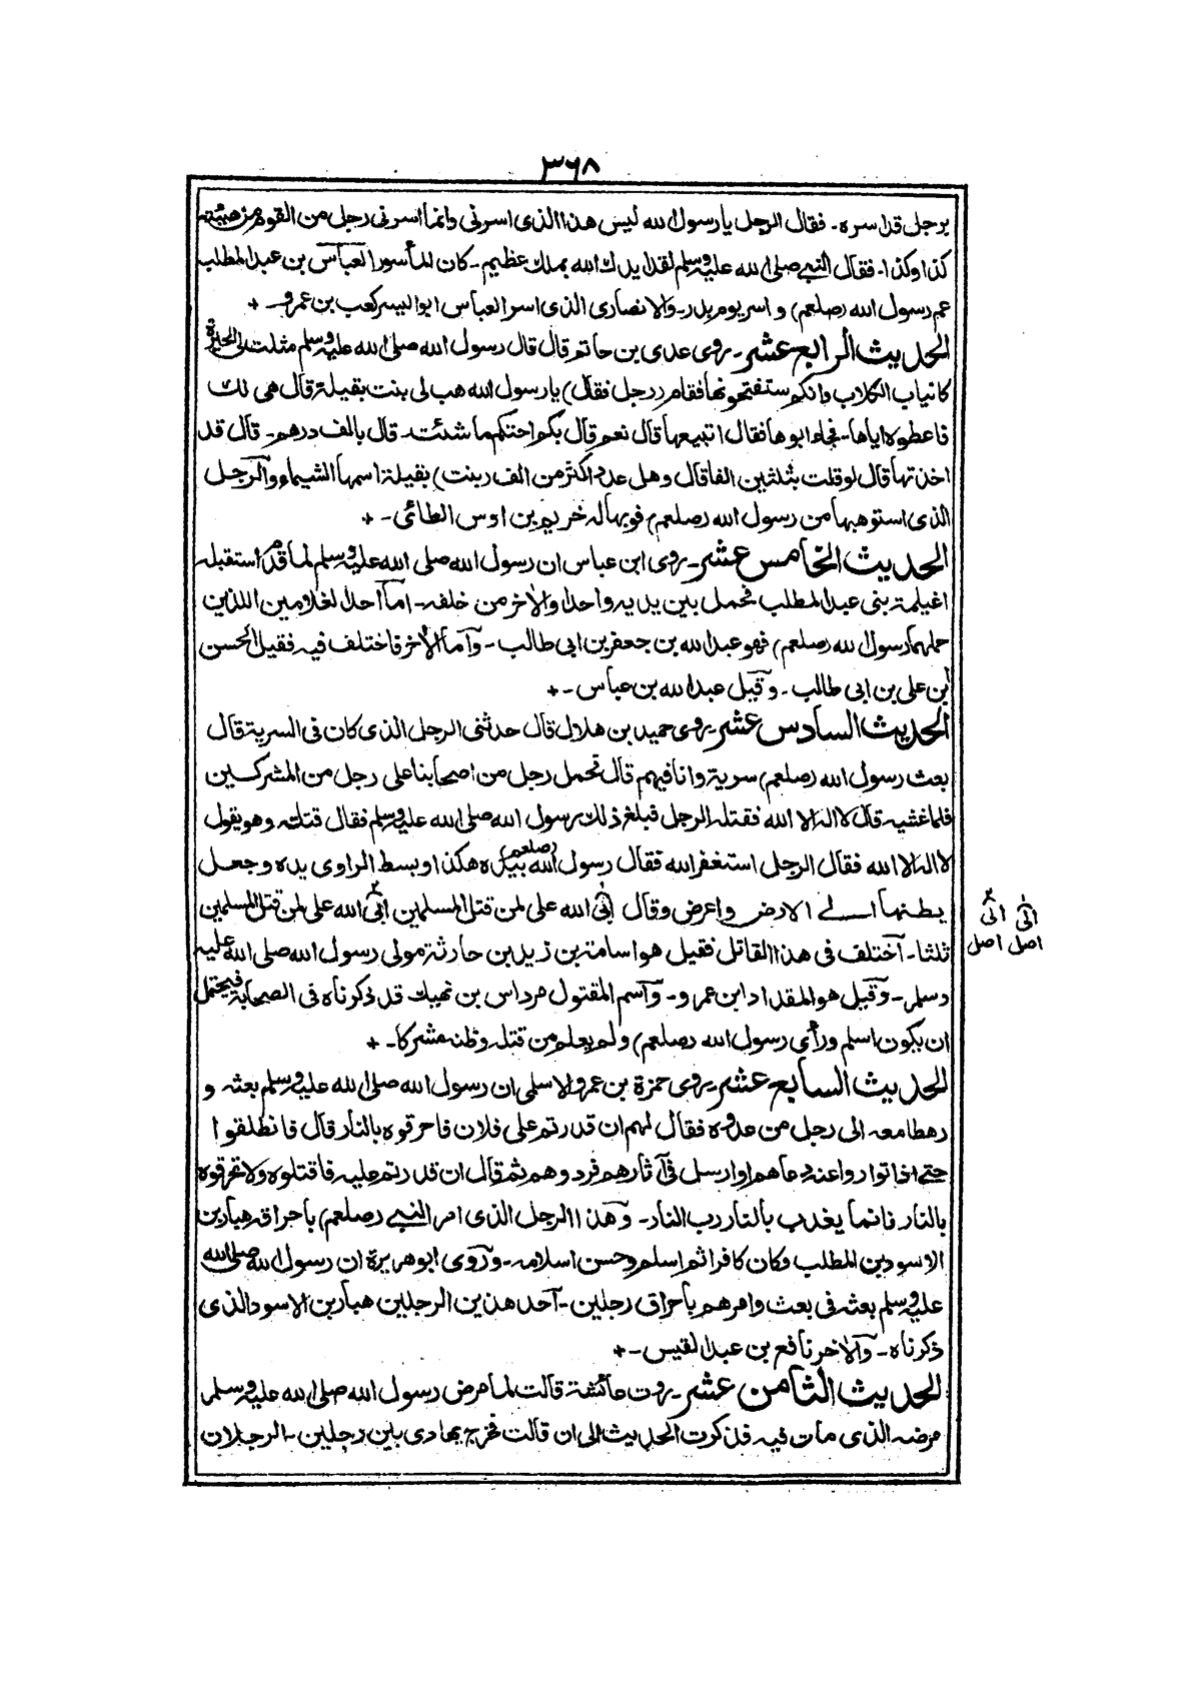 ٣٦٨
برجل قد اسره۔ فقال الرجل يا رسول الله ليس هذا الذى اسرنى وانما اسرنى رجل من القوم من هيئته
كذا وكذا۔ فقال النبى صلى الله عليه وسلم لقد ايدك الله بملك عظيم۔ كان المأسور العباس بن عبد المطلب
عم رسول الله (صلعم) و اسر يوم بدر۔ والانصارى الذى اسر العباس ابو اليسر كعب بن عمرو۔ +
الحديث الرابع عشر۔ روى عدى بن حاتم قال قال رسول الله صلى الله عليه وسلم مثلت لى الحيرة
كانياب الكلاب وانكم ستفتحونها فقام (رجل فقال) يا رسول الله هب لى بنت بقيلة قال هى لك
فاعطوه اياها۔ فجاء ابوها فقال اتبيعها قال نعم قال بكم احتكم ما شئت۔ قال بالف درهم۔ قال قد
اخذتها قال لو قلت بثلثين الفا قال وهل عدد اكثر من الف (بنت) بقيلة اسمها الشيماء والرجل
الذى استوهبها من رسول الله (صلعم) فوبها له خريم بن اوس الطائى۔ +
الحديث الخامس عشر۔ روى ابن عباس ان رسول الله صلى الله عليه وسلم لما قدم استقبله
اغيلمة بنى عبد المطلب فحمل بين يديه واحدا والاخر من خلفه۔ اما احد الغلامين اللذين
حملهما رسول الله (صلعم) فهو عبد الله بن جعفر بن ابى طالب۔ وآما الأخر فاختلف فيه فقيل الحسن
ابن على بن ابى طالب۔ وقيل عبد الله بن عباس۔ +
الحديث السادس عشر۔ روى حميد بن هلال قال حدثنى الرجل الذى كان فى السرية قال
بعث رسول الله (صلعم) سرية وانا فيهم قال فحمل رجل من اصحابنا على رجل من المشركين
فلما غشيه قال لا اله الا الله فقتله الرجل فبلغ ذلك رسول الله صلى الله عليه وسلم فقال قتلته وهو يقول
لا اله الا الله فقال الرجل استغفر الله فقال رسول الله (صلعم) بيده هكذا وبسط الراوى يده وجعل
بطنها الى الارض واعرض وقال ابى الله على لمن قتل المسلمين ابى الله على لمن قتل المسلمين
ابى ابى
اصل اصل
ثلثا۔ آختلف فى هذا القاتل فقيل هو اسامة بن زيد بن حارثة مولى رسول الله صلى الله عليه
وسلم۔ وقيل هو المقداد ابن عمرو۔ وآسم المقتول مرداس بن نهيك قد ذكرناه فى الصحابة فيحتمل
ان يكون اسلم ورأى رسول الله (صلعم) ولم يعلم من قتله وظنه مشركا۔ +
الحديث السابع عشر۔ روى حمزة بن عمرو الاسلمى ان رسول الله صلى الله عليه وسلم بعثه و
رهطا معه الى رجل من عدوه فقال لهم ان قدرتم على فلان فاحرقوه بالنار قال فانطلقوا
حتى اذا تواروا عنه دعاهم او ارسل فى آثارهم فردوهم ثم قال ان قدرتم عليه فاقتلوه ولا تحرقوه
بالنار فانما يعذب بالنار رب النار۔ وهذا الرجل الذى امر النبى (صلعم) باحراقه هبار بن
الاسود بن المطلب وكان كافرا ثم اسلم وحسن اسلامه۔ وروى ابو هريرة ان رسول الله صلى الله
عليه وسلم بعثه فى بعث وامرهم باحراق رجلين۔ آحد هذين الرجلين هبار بن الاسود الذى
ذكرناه۔ والاخر نافع بن عبد القيس۔ +
الحديث الثامن عشر۔ روت عائشة قالت لما مرض رسول الله صلى الله عليه وسلم
مرضه الذى مات فيه فذكرت الحديث الى ان قالت فخرج يهادى بين رجلين۔ الرجلان